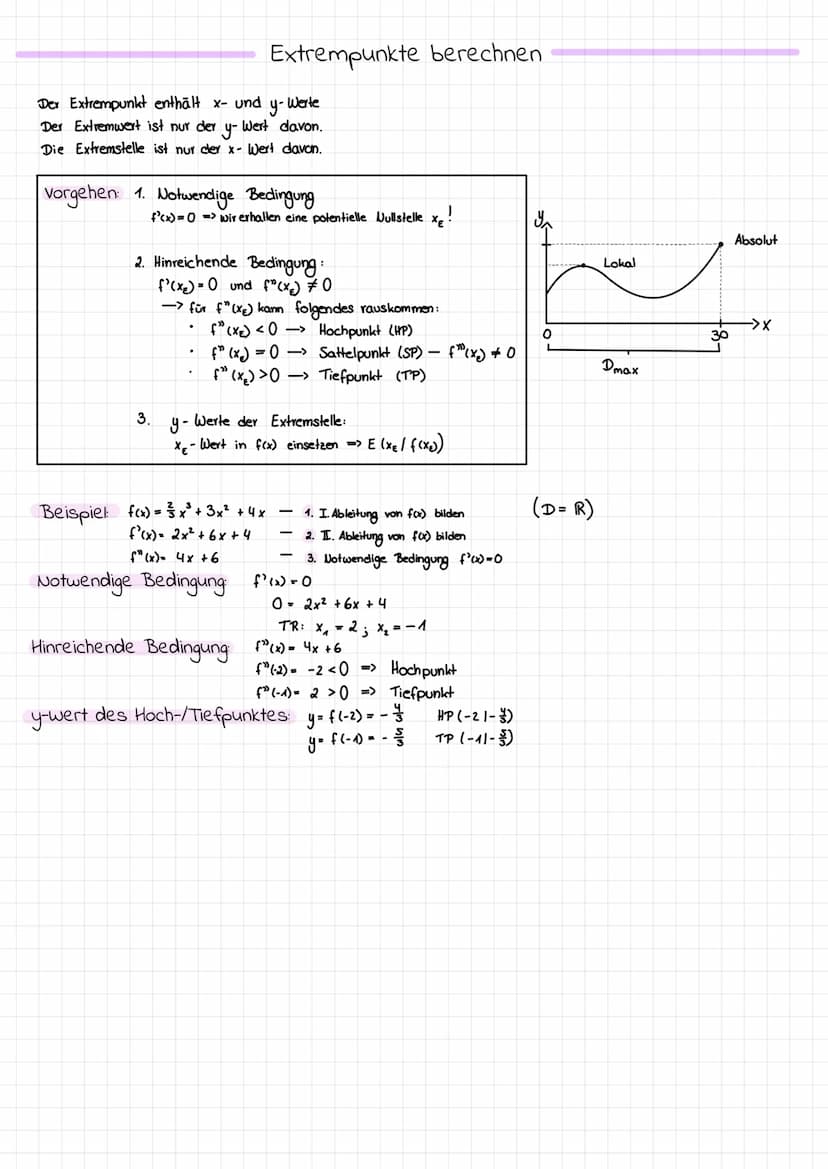 Extrempunkte berechnen
Der Extrempunkt enthält x- und y-Werte
Der Extremwert ist nur der y-Wert davon.
Die Extremstelle ist nur der x-Wert davon.
Vorgehen: 1. Notwendige Bedingung
f'(x)=0 => wir erhalten eine potentielle Nullstelle x_E!
2. Hinreichende Bedingung:
f'(x_E)=0 und f"(x_E) ≠ 0
—> für f"(x_E) kann folgendes rauskommen:
· f"(x_E) < 0 —> Hochpunkt (HP)
· f"(x_E) = 0 —> Sattelpunkt (SP) — f'''(x_E) ≠ 0
· f"(x_E) > 0 —> Tiefpunkt (TP)
3. y-Werte der Extremstelle:
x_E-Wert in f(x) einsetzen => E (x_E / f(x_E))
y
Absolut
Lokal
x
0
30
D_max
Beispiel: f(x) = 2/3 x³ + 3x² + 4x — 1. I. Ableitung von f(x) bilden (D = ℝ)
f'(x) = 2x² + 6x + 4 — 2. II. Ableitung von f(x) bilden
f"(x) = 4x + 6 — 3. Notwendige Bedingung f'(x)=0
Notwendige Bedingung: f'(x) = 0
0 = 2x² + 6x + 4
TR: x₁ = 2 ; x₂ = -1
Hinreichende Bedingung: f"(x) = 4x + 6
f"(-2) = -2 < 0 => Hochpunkt
f"(-1) = 2 > 0 => Tiefpunkt
y-wert des Hoch-/Tiefpunktes: y = f(-2) = -4/3 HP (-2 | -4/3)
y = f(-1) = -5/3 TP (-1 | -5/3)